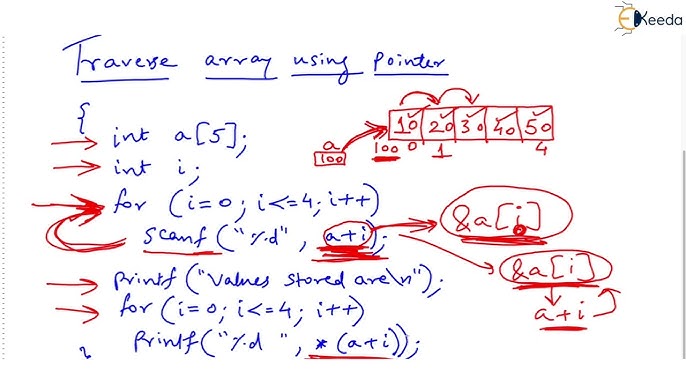 Ekeeda
Traverse array using pointer
{
int a[5];
int i;
for (i=0; i<=4; i++)
scanf ("%d", a+i);
printf ("Values stored are\n");
for (i=0; i<=4; i++)
printf ("%d ", *(a+i));
a
100
10 20 30 40 50
100 0 1 4
&a[i]
&a[i]
a+i